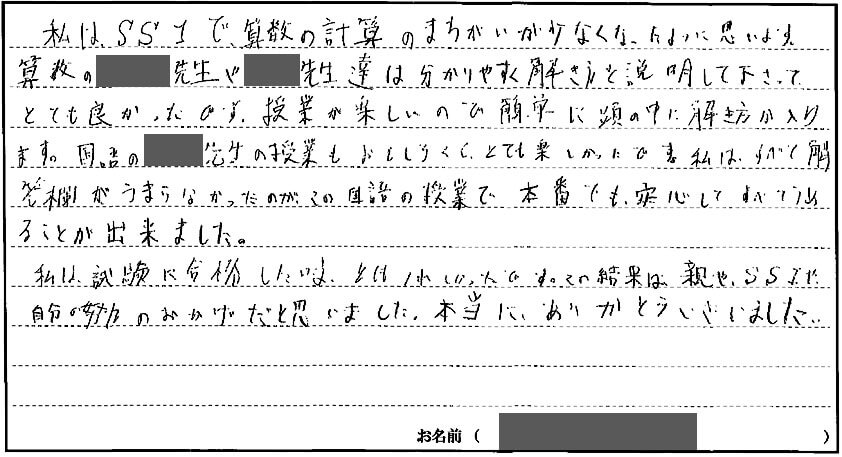 私は、SS-1で、算数の計算のまちがいが少なくなったように思います。
算数の 先生や 先生達は分かりやすく解き方を説明して下さって
とても良かったです。授業が楽しいので簡単に頭の中に解き方が入り
ます。国語の 先生の授業もおもしろくて、とても楽しかったです。私は、すべて解
答欄がうまらなかったのが、この国語の授業で、本番でも、安心してすべてうめ
ることが出来ました。
私は、試験に合格した とてもうれしかったです。この結果は、親や、SS-1や、
自分の努力のおかげだと思いました。本当に、ありがとうございました。
お名前（ ）